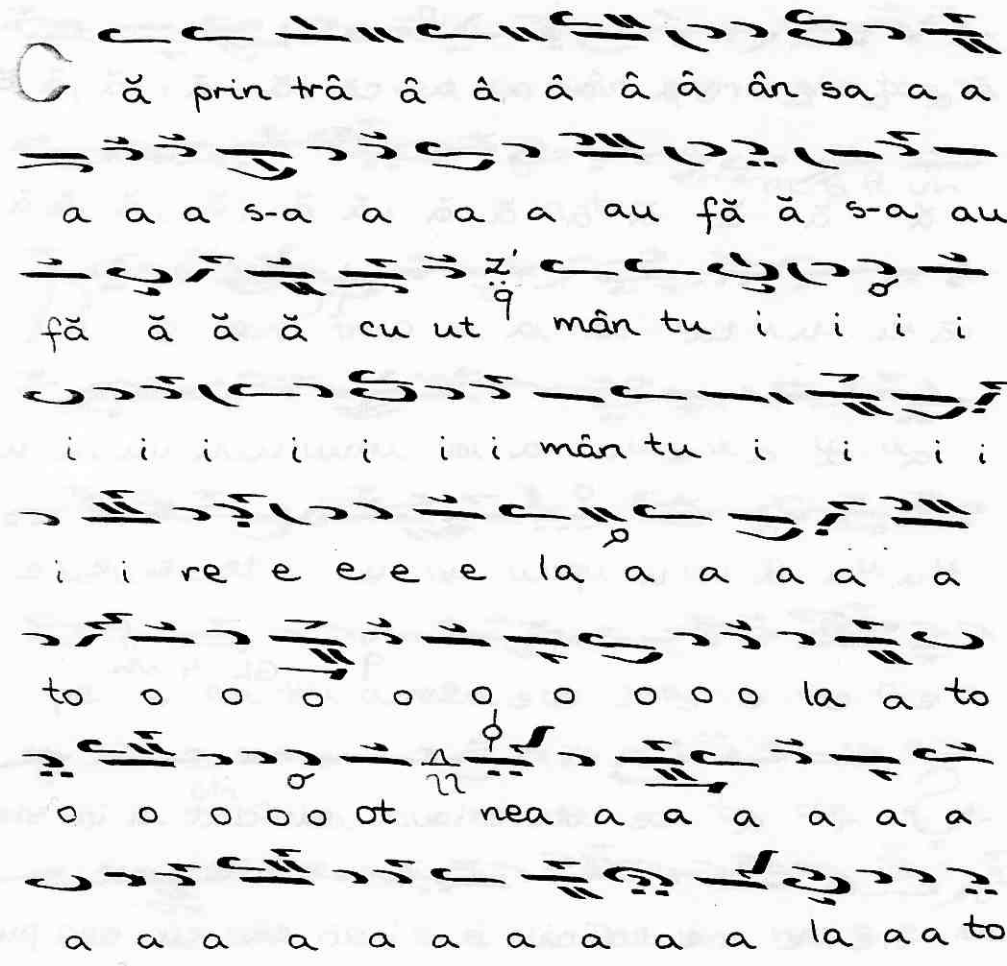 Că prin trâ â â â â â ân sa a a
a a a s-a a a a au fă ă s-a au
fă ă ă ă cu ut mân tu i i i i
i i i i i i i mân tu i i i i
i i re e e e e la a a a a a
to o o o o o o o o o la a to
o o o o ot nea a a a a a a
a a a a a a a a a a la a a to